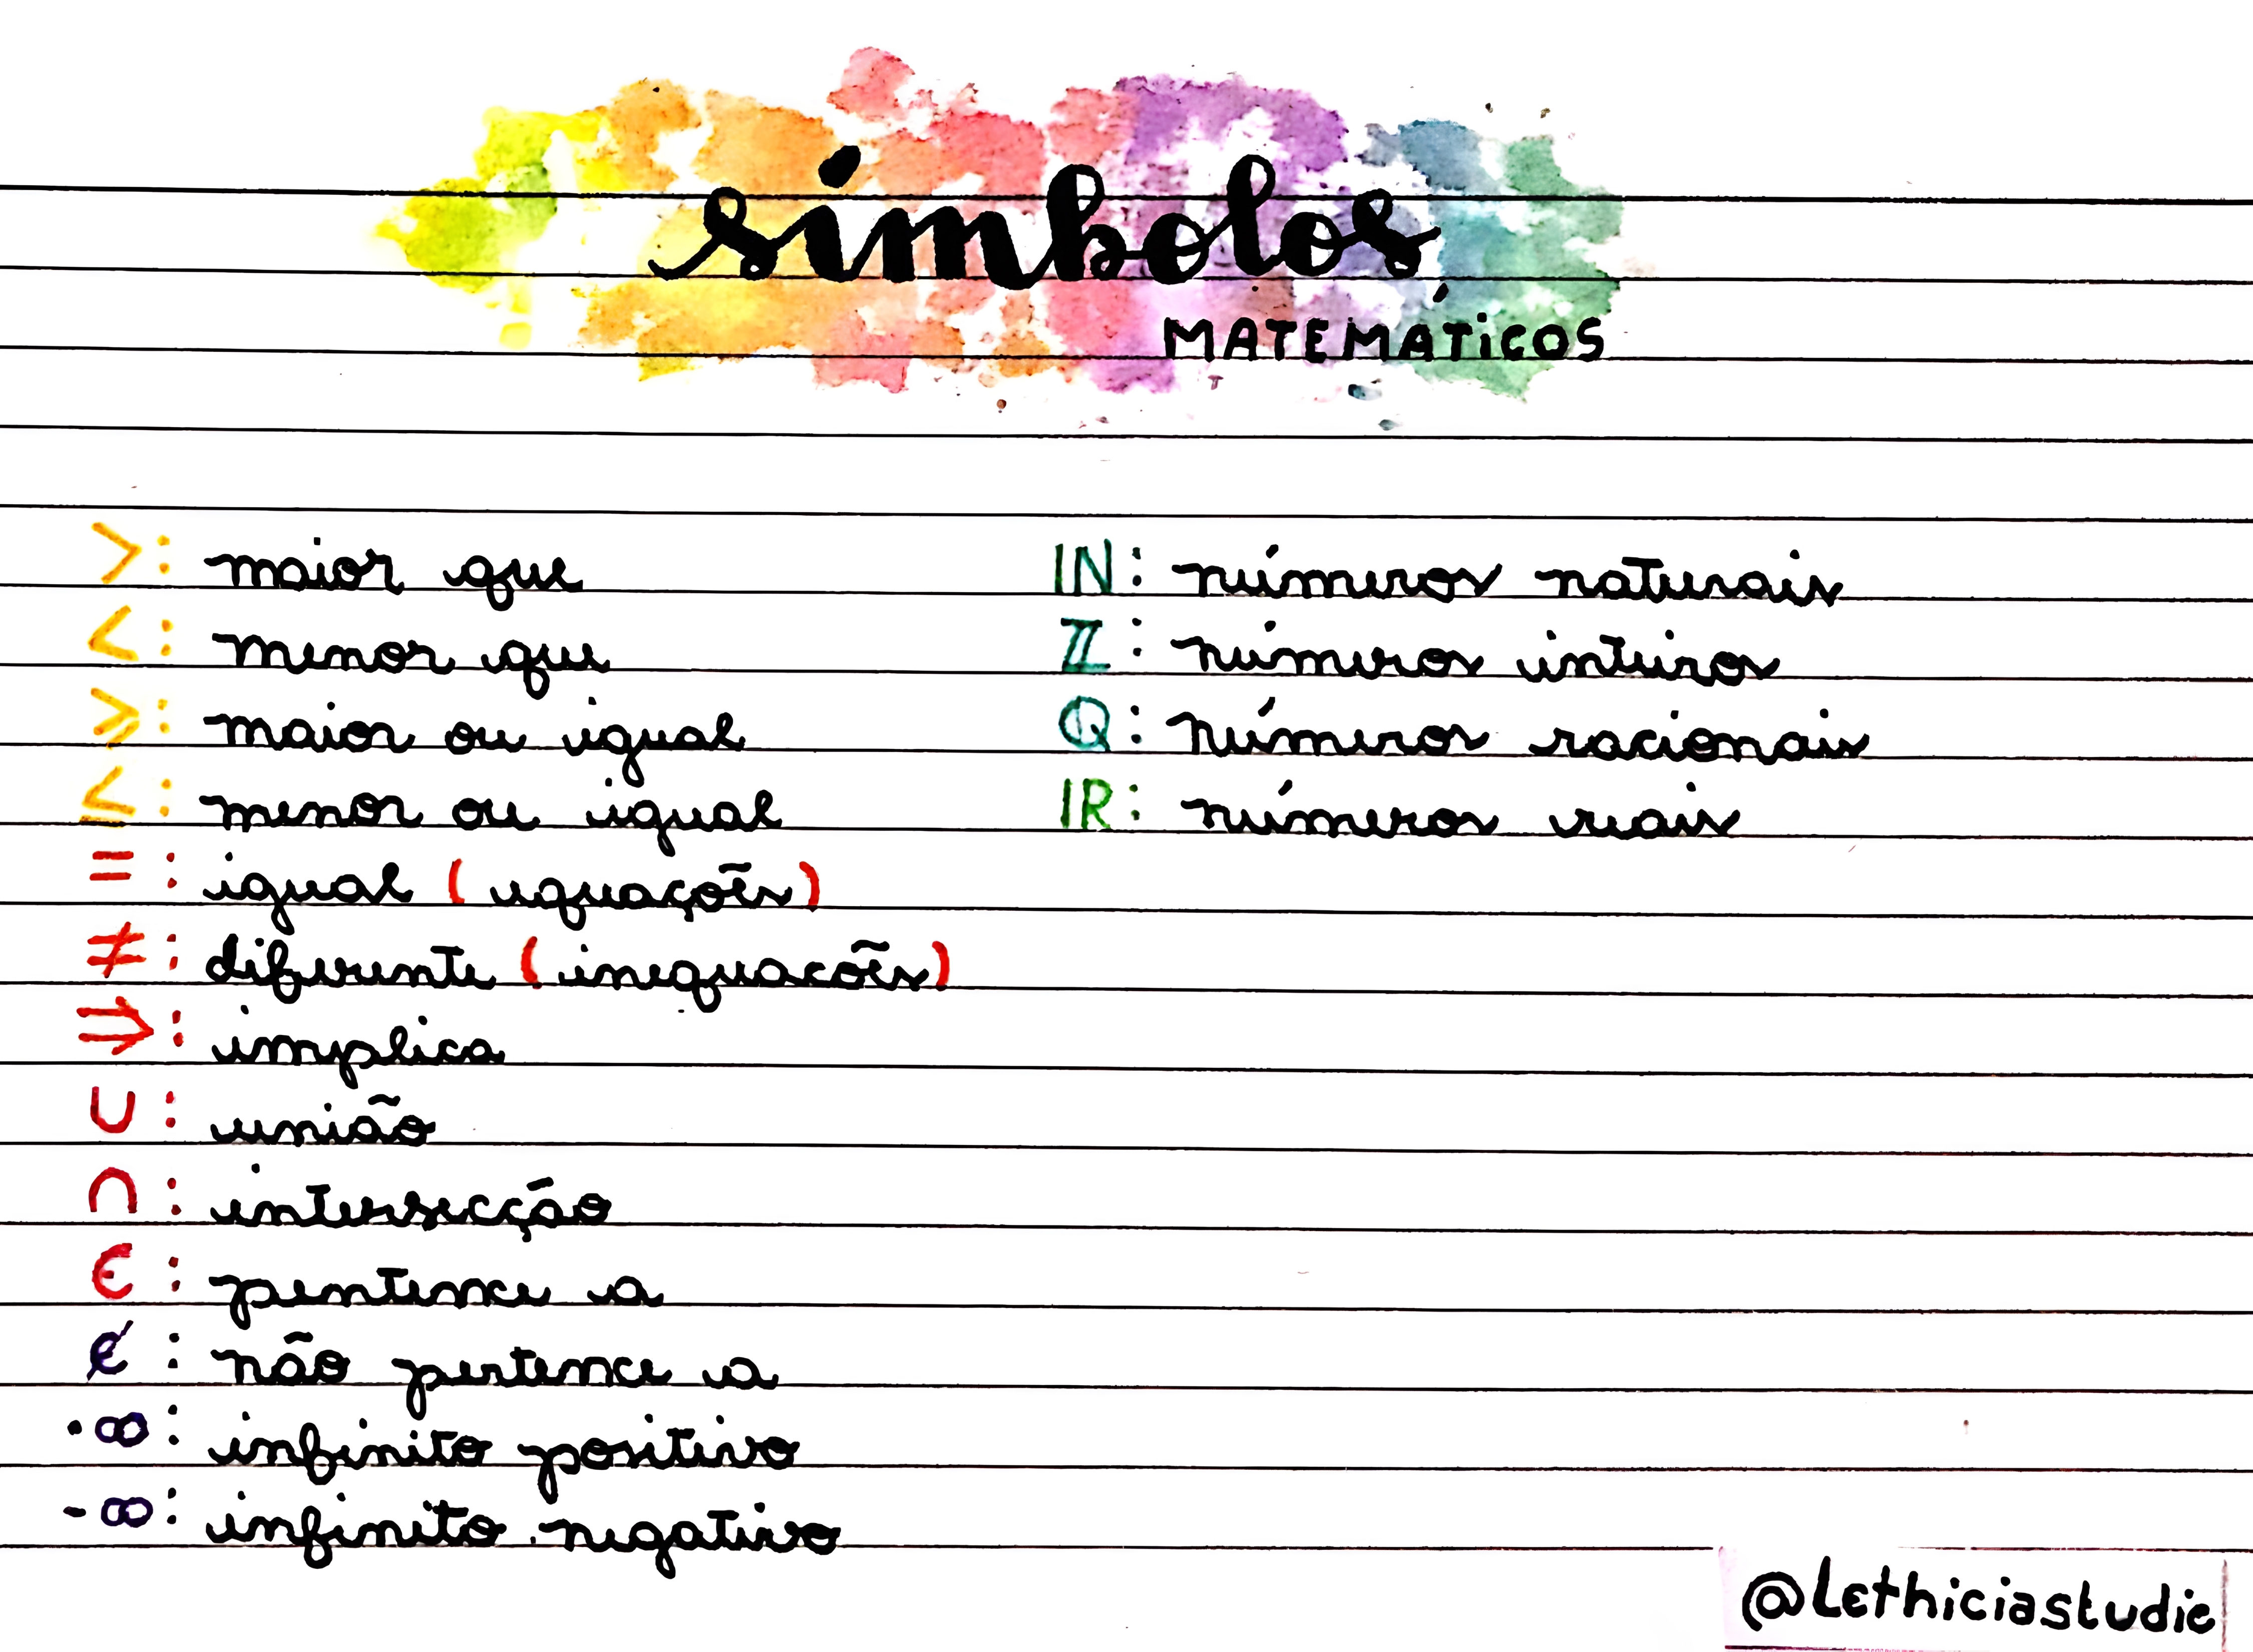 símbolos
MATEMÁTICOS
>: maior que
<: menor que
≥: maior ou igual
≤: menor ou igual
=: igual (equações)
≠: diferente (inequacões)
⇒: implica
∪: união
∩: intersecção
∈: pentence a
∉: não pertence a
·∞: infinito positivo
-∞: infinito negativo
IN: números naturais
ℤ: números inteiros
Q: números racionais
IR: números reais
@Lethiciastudie